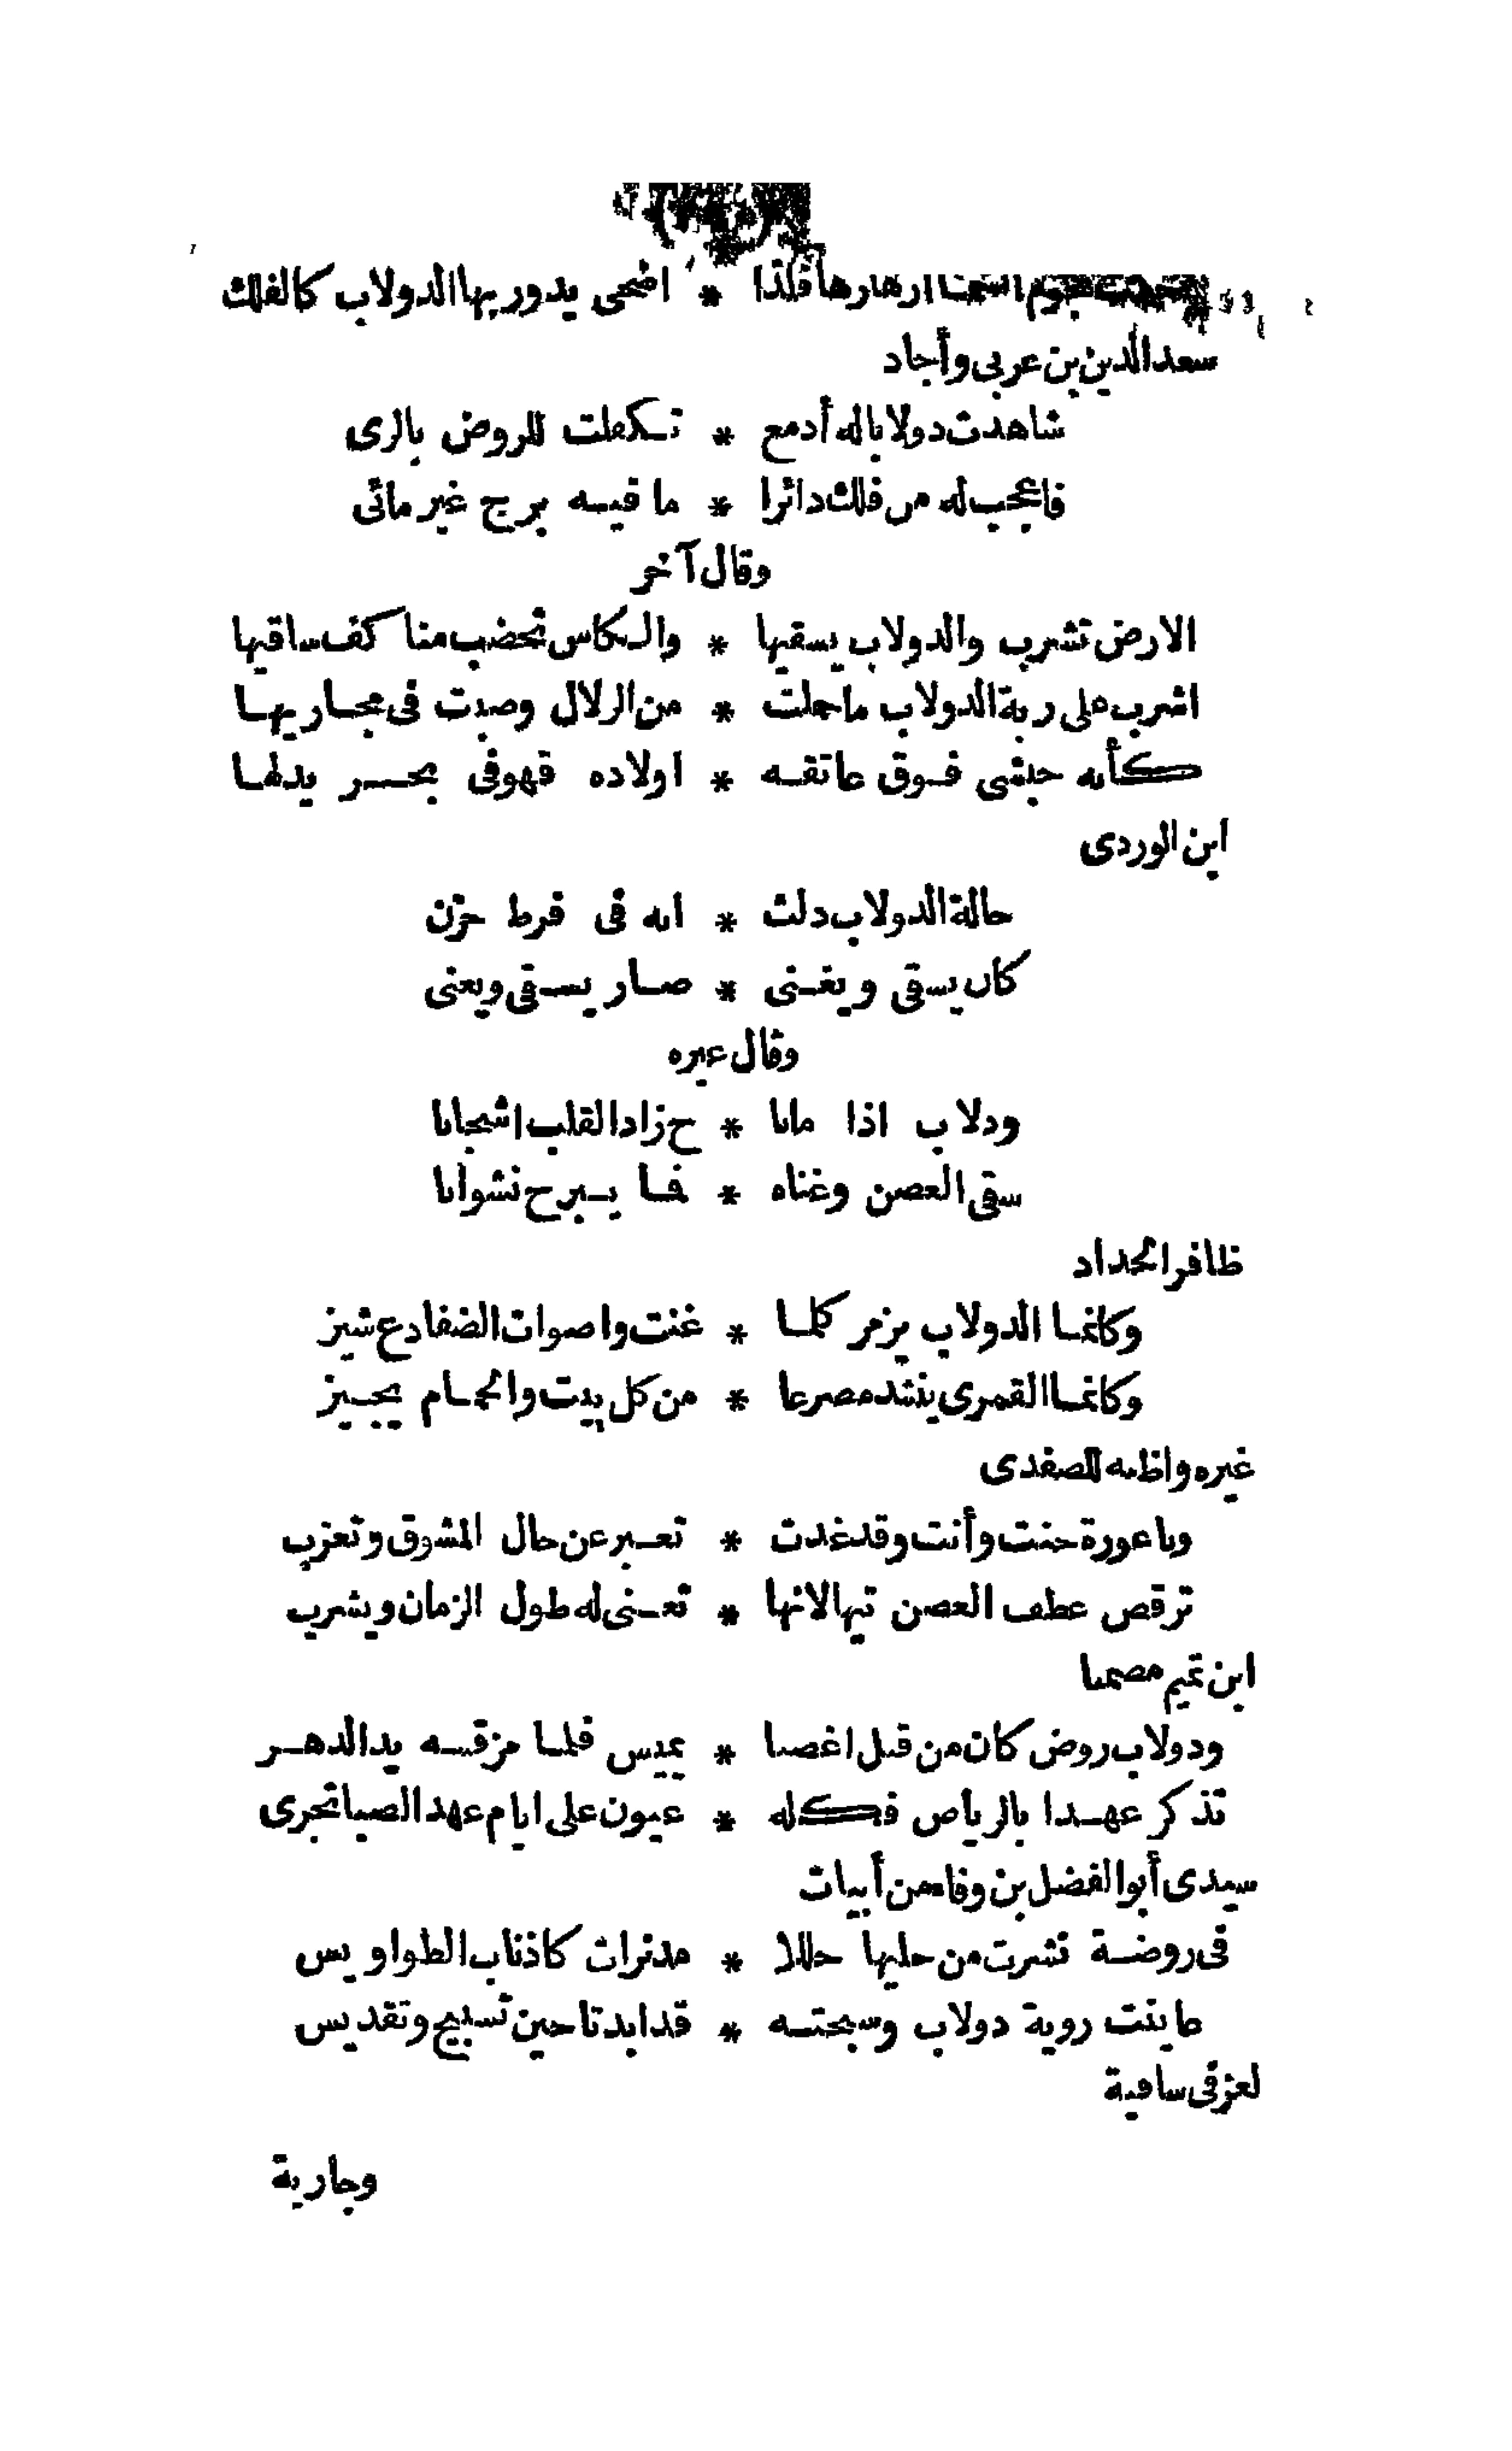 نجوم السما ازهارها فلذا * اضحى يدور بها الدولاب كالفلك
سعد الدين بن عربى وأجاد
شاهدت دولابا له أدمع * تكفلت للروض بالرى
فاعجب له من فلك دائرا * ما فيه برج غير مائى
وقال آخر
الارض تشرب والدولاب يسقيها * والكاس تخضب منا كف ساقيها
اشرب على رنة الدولاب ما حملت * من الزلال وصبت فى مجاريها
كأنه حبشى فوق عاتقه * اولاده قهو فى بحر يدلها
ابن الوردى
حالة الدولاب دلت * انه فى فرط حزن
كان يسقى ويغنى * صار يسقى ويغنى
وقال غيره
ودلاب اذا مانا * ح زاد القلب اشجانا
سقى الغصن وغناه * فما يبرح نشوانا
ظافر الحداد
وكانما الدولاب يزمر كلما * غنت واصوات الضفادع شيز
وكانما القمرى ينشد مصرعا * من كل بيت والحمام يجيز
غيره واظنه للصفدى
وناعورة حنت وأنت وقد غدت * تعبر عن حال المشوق وتعرب
ترقص عطف الغصن تيها لانها * تغنى له طول الزمان ويشرب
ابن تميم مضمنا
ودولاب روض كان من قبل اغصنا * يميس فلما مزقته يد الدهر
تذكر عهدا بالرياض فكله * عيون على ايام عهد الصبا تجرى
سيدى أبو الفضل بن وفا من أبيات
فى روضة نشرت من حليها حللا * مدنرات كاذناب الطواويس
عاينت روية دولاب وسبحته * قد ابدتا حين تسبيح وتقديس
لغز فى ساقية
وجارية